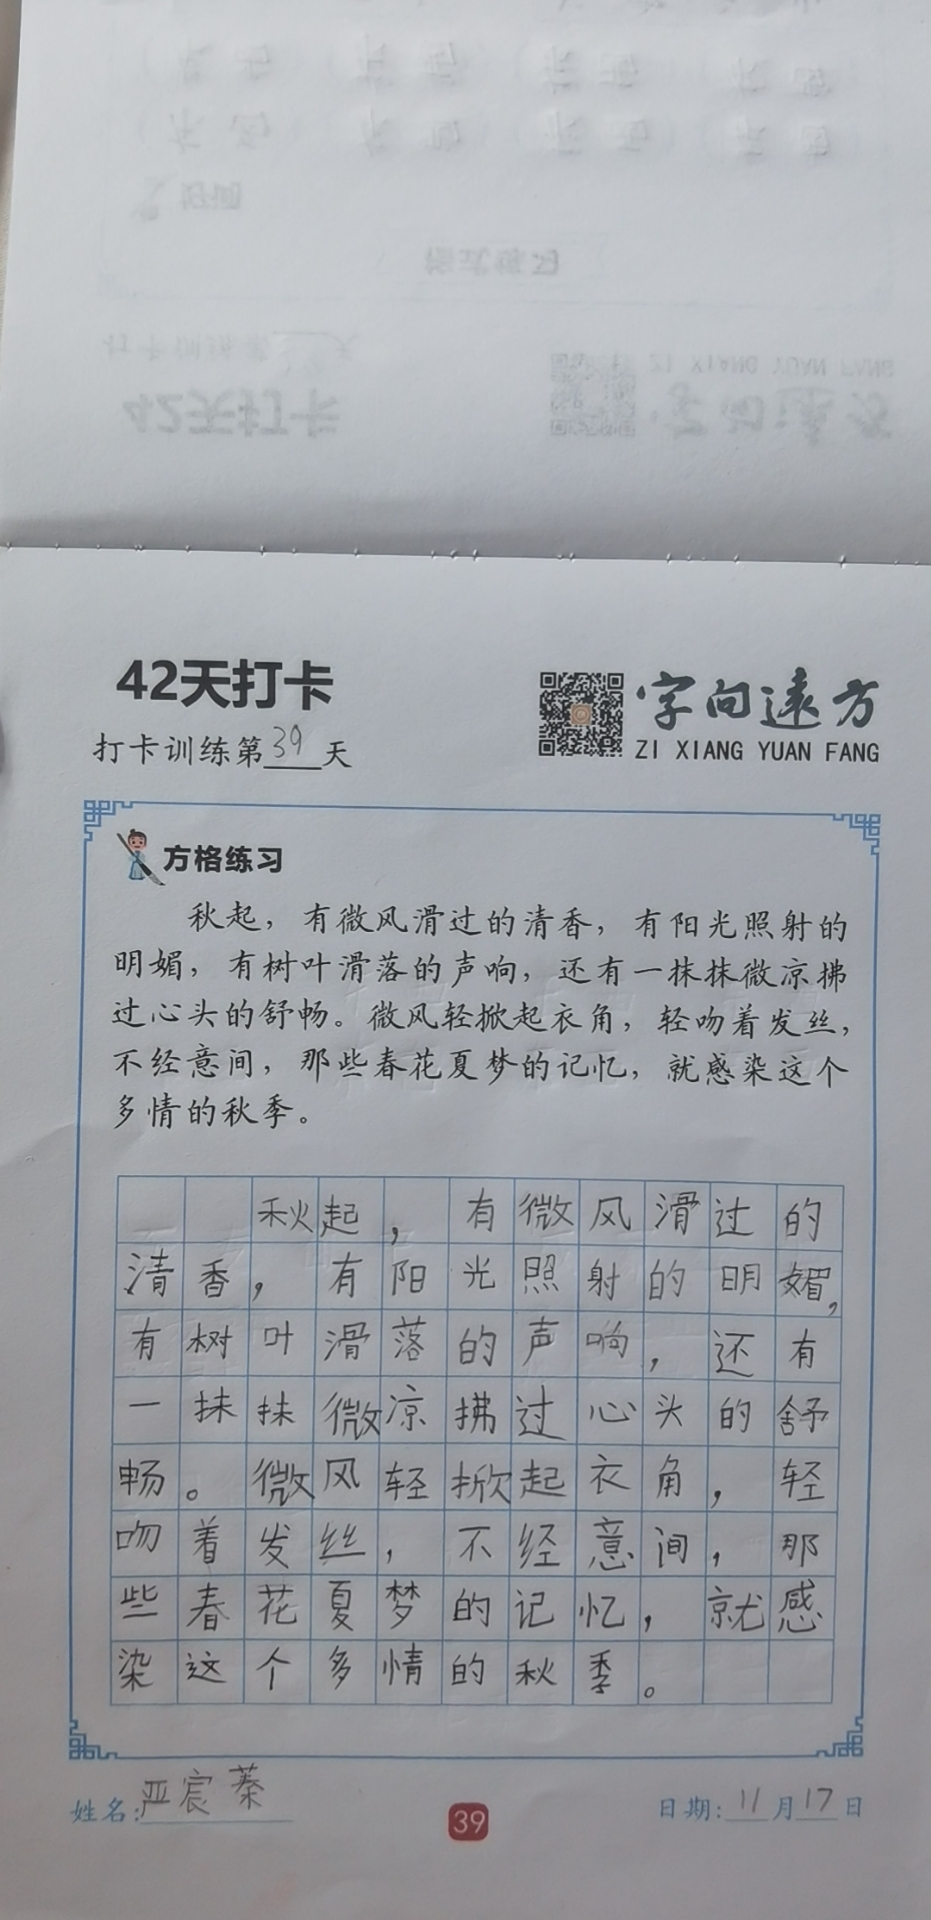 42天打卡
打卡训练第39天
字向远方
ZI XIANG YUAN FANG
方格练习
秋起，有微风滑过的清香，有阳光照射的
明媚，有树叶滑落的声响，还有一抹抹微凉拂
过心头的舒畅。微风轻掀起衣角，轻吻着发丝，
不经意间，那些春花夏梦的记忆，就感染这个
多情的秋季。
秋起，有微风滑过的
清香，有阳光照射的明媚，
有树叶滑落的声响，还有
一抹抹微凉拂过心头的舒
畅。微风轻掀起衣角，轻
吻着发丝，不经意间，那
些春花夏梦的记忆，就感
染这个多情的秋季。
姓名：严宸蓁
39
日期：11月17日